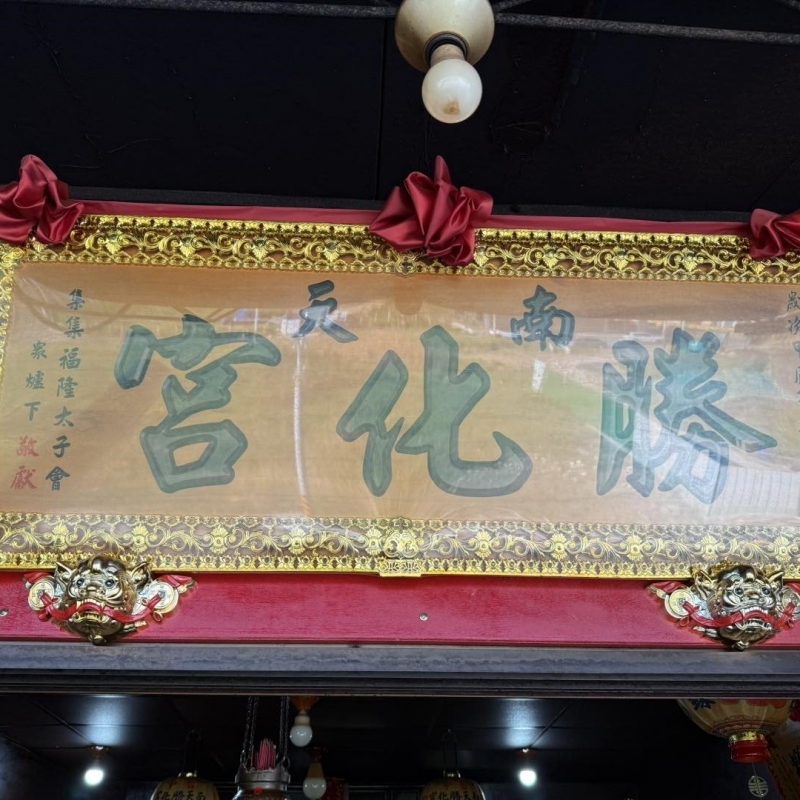 南天
勝化宮
集集福隆太子會
眾爐下敬獻